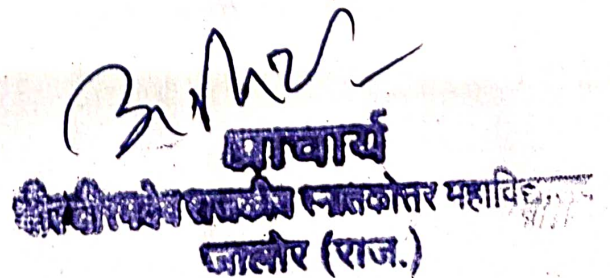 प्राचार्य
वीर वीरमदेव राजकीय स्नातकोत्तर महाविद्यालय
जालोर (राज.)